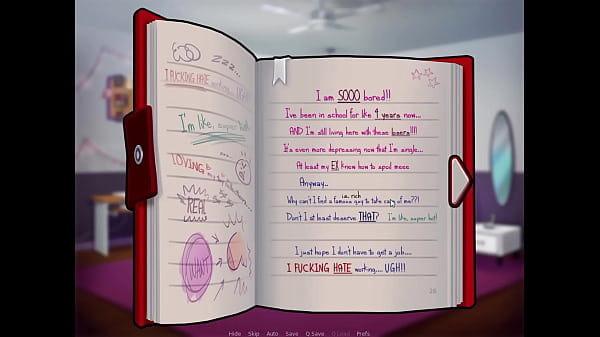 zzz...
I FUCKING HATE working... UGH!!
I'm like, super hot!
LOVING
REAL
I WANT
I am SOOO bored!!
I've been in school for like 4 years now...
AND I'm still living here with these losers!!!!
It's even more depressing now that I'm single...
At least my EX knew how to spoil meee
Anyway..
i.e. rich
Why can't I find a famous guy to take care of me??!
Don't I at least deserve THAT? I'm like, super hot!
I just hope I don't have to get a job....
I FUCKING HATE working.... UGH!!
26
Hide Skip Auto Save Q.Save Q.Load Prefs